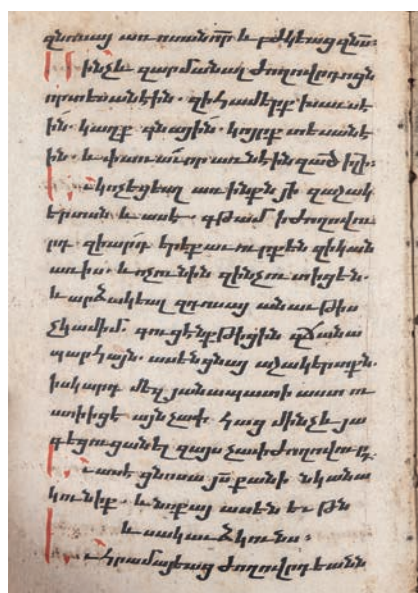 զնոսայ առ ոտս նոր և բժկեաց զնս։
Մինչև զարմանալ ժողովրդոցն
որ տեսանէին. զի համերք խաւսէ
ին. կաղք գնային. կոյրք տեսանէ
ին. և փառաւոր առնէին զած իլի։
Եւ կոչեցեալ առ ինքն յի զաշակ
երտսն և ասէ. գթամ ի ժողովու
րդ զի արդ երեք աւուրք են զի կան
առ իս. և ոչ ունին զինչ ուտիցեն.
և արձակել զդոսայ անաւթիս
չկամիմ. գուցէ նքթիցին զճանա
պարհայն. ասեն ցնայ աշակերտքն.
իսկ արդ մեզ յանապատի աստ ու
ստի իցէ այնչափ հաց մինչև յա
գեցուցանել զայս չափ ժողովուրդ.
Եւ ասէ ցնոսա յս քանի նկանա
կ ունիք. և նոքայ ասեն եւթն
և սակաւ ձկունս։
Եւ հրամայեաց ժողովրդեանն